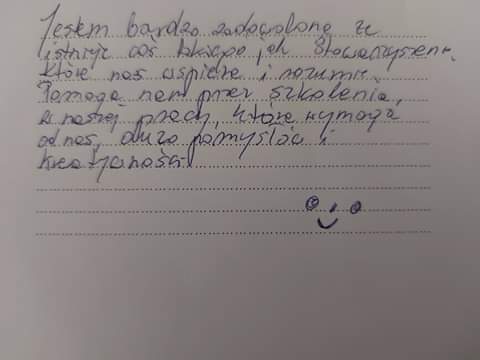 Jestem bardzo zadowolona że
istnieje coś takiego jak Stowarzyszenie,
które nas wspiera i rozumie.
Pomaga nam przez szkolenia,
w naszej pracy, która wymaga
od nas, dużo pomysłów i
kreatywności